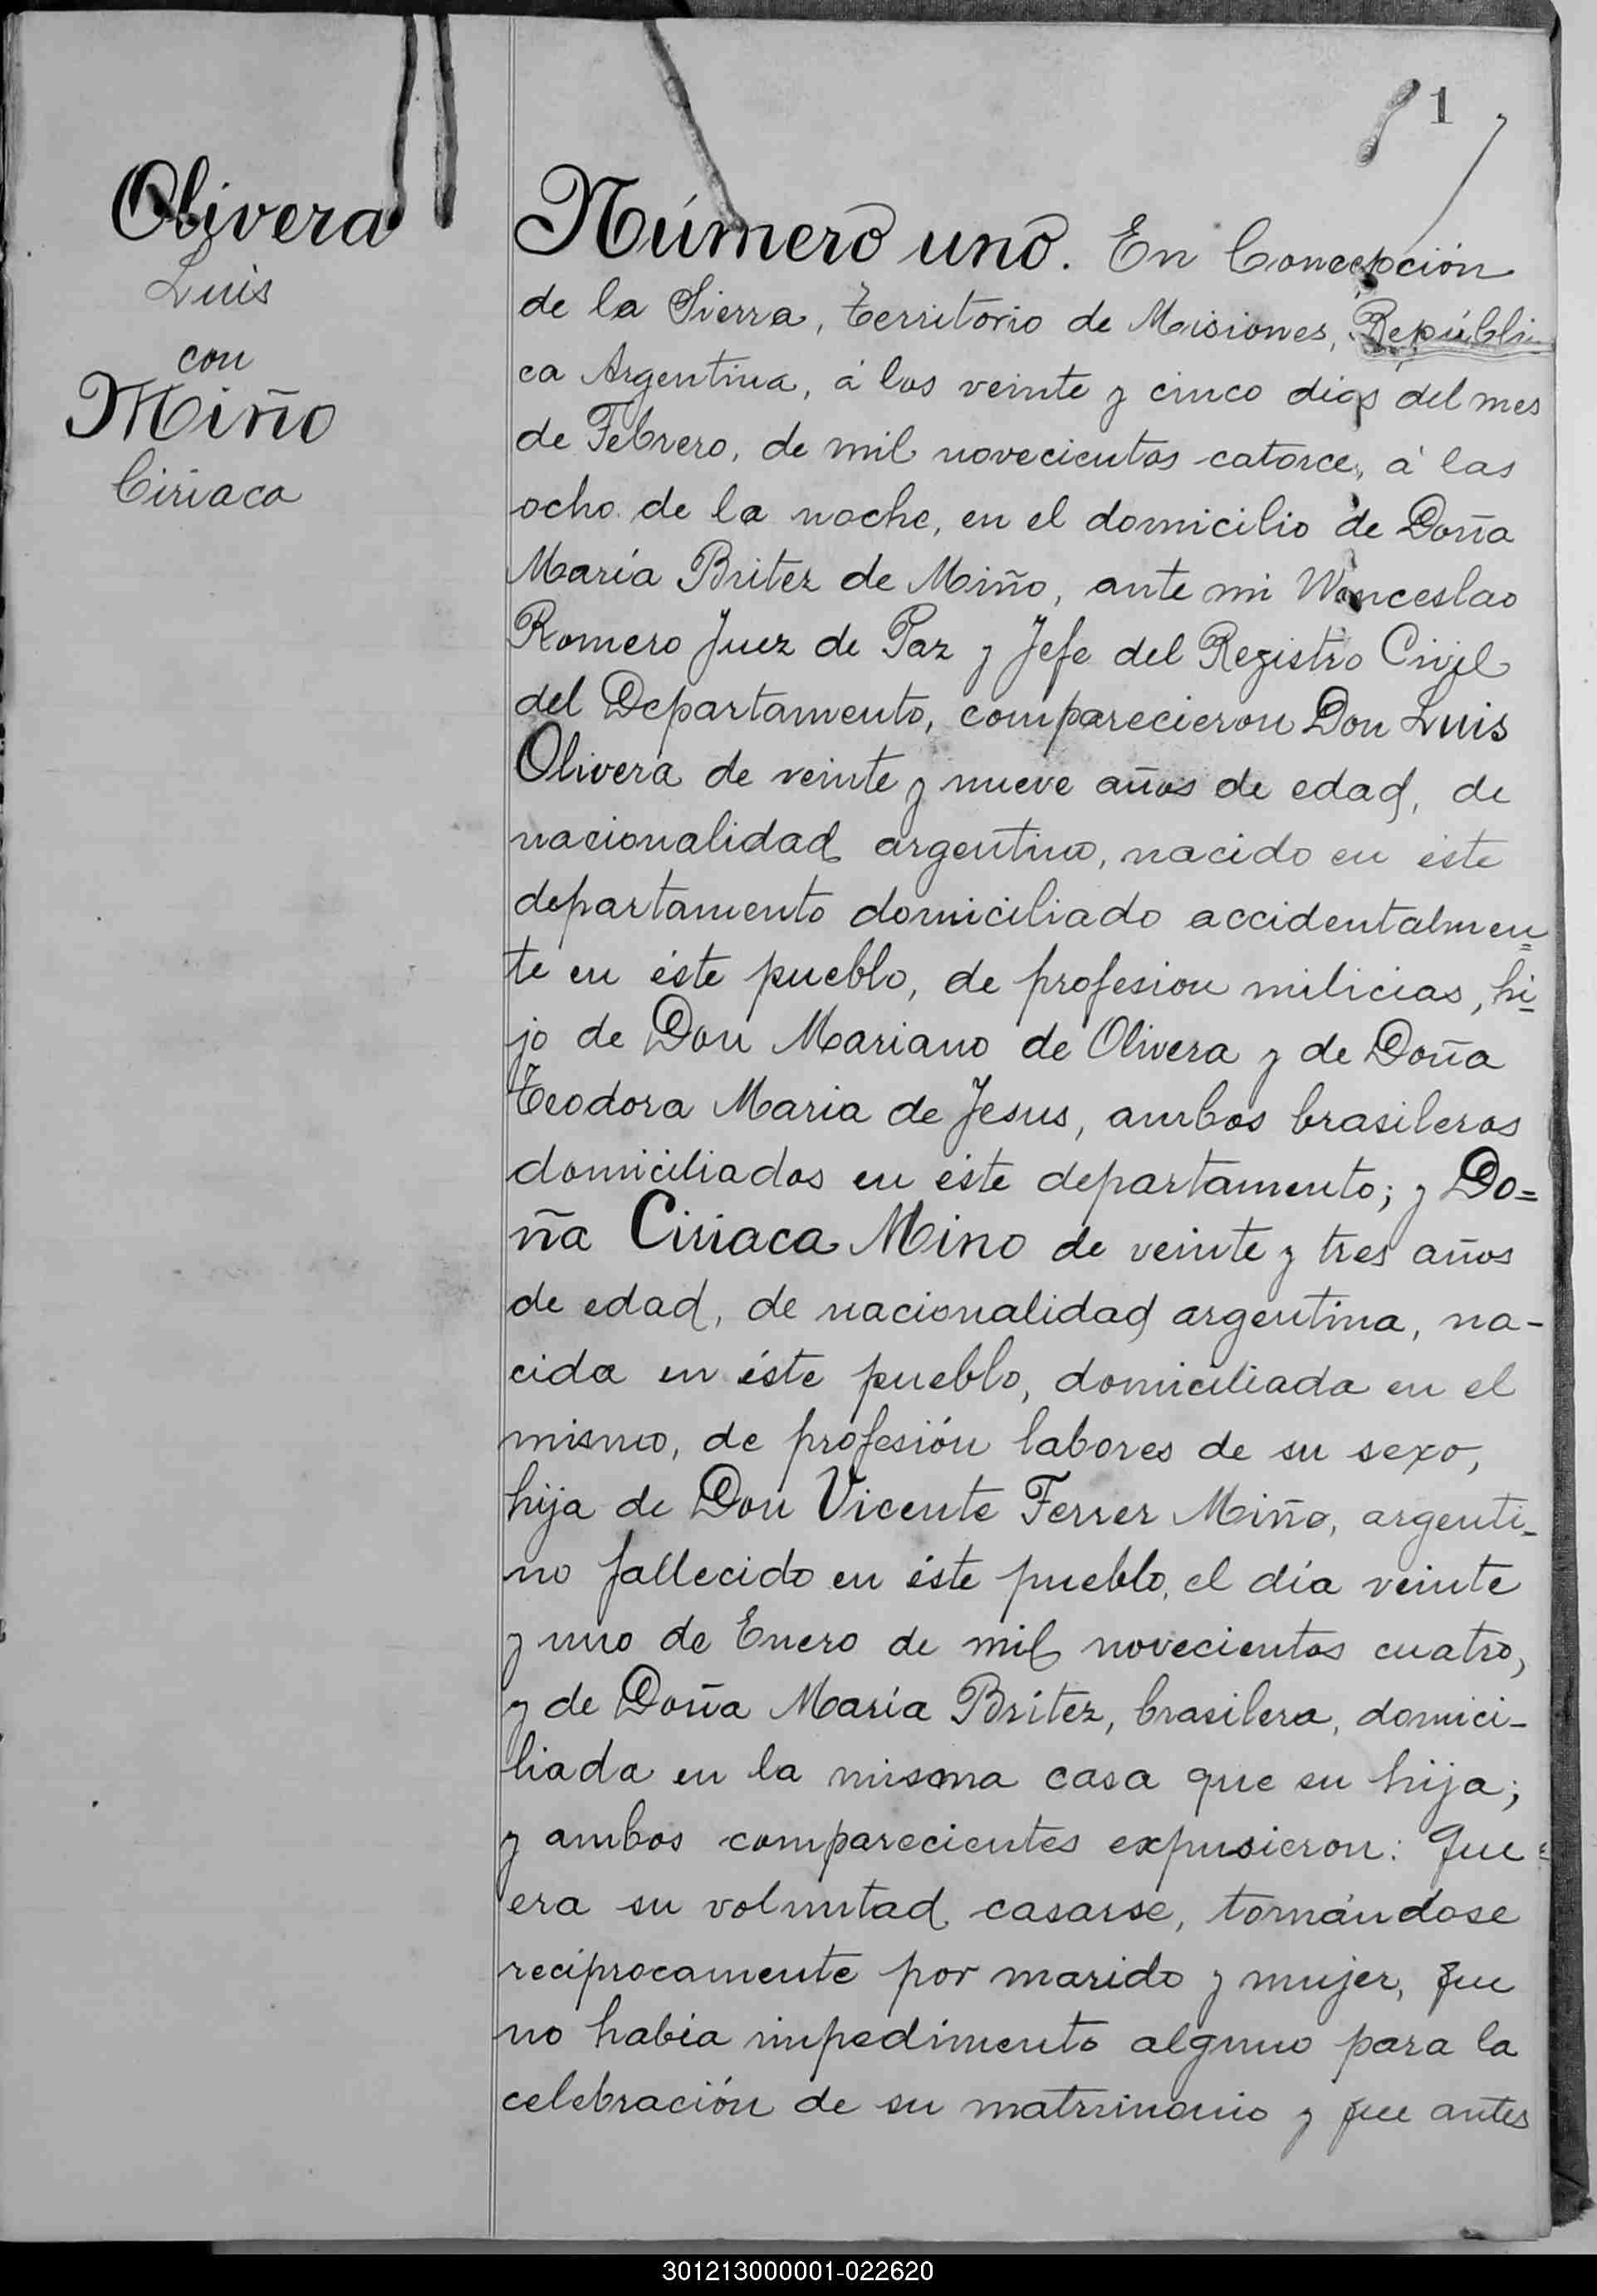 1
Olivera
Luis
con
Miño
Ciriaca
Número uno. En Concepción
de la Sierra, Territorio de Misiones, Repúbli-
ca Argentina, á los veinte y cinco dias del mes
de Febrero, de mil novecientos catorce, á las
ocho de la noche, en el domicilio de Doña
María Britez de Miño, ante mi Wenceslao
Romero Juez de Paz y Jefe del Registro Civil
del Departamento, comparecieron Don Luis
Olivera de veinte y nueve años de edad, de
nacionalidad argentino, nacido en éste
departamento domiciliado accidentalmen=
te en éste pueblo, de profesion milicias, hi=
jo de Don Mariano de Olivera y de Doña
Teodora Maria de Jesus, ambos brasileros
domiciliados en éste departamento; y Do=
ña Ciriaca Mino de veinte y tres años
de edad, de nacionalidad argentina, na-
cida en éste pueblo, domiciliada en el
mismo, de profesión labores de su sexo,
hija de Don Vicente Ferrer Miño, argenti-
no fallecido en éste pueblo, el día veinte
y uno de Enero de mil novecientos cuatro,
y de Doña María Britez, brasilera, domici-
liada en la misma casa que su hija;
y ambos comparecientes expusieron: Que=
era su voluntad casarse, tomándose
recíprocamente por marido y mujer, que
no había impedimento alguno para la
celebración de su matrimonio y que antes
301213000001-022620